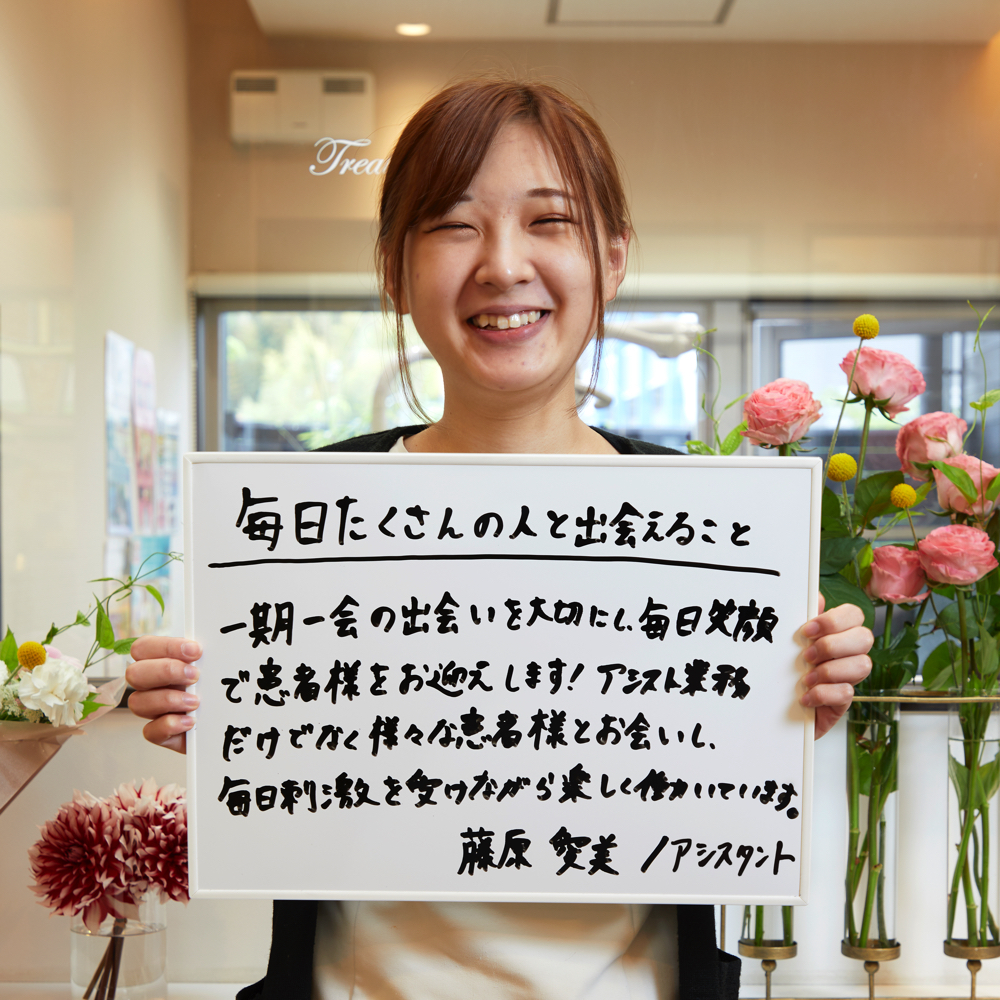 Trea
毎日たくさんの人と出会えること
一期一会の出会いを大切にし、毎日笑顔
で患者様をお迎えします！アシスト業務
だけでなく様々な患者様とお会いし、
毎日刺激を受けながら楽しく働いています。
藤原 愛美 /アシスタント